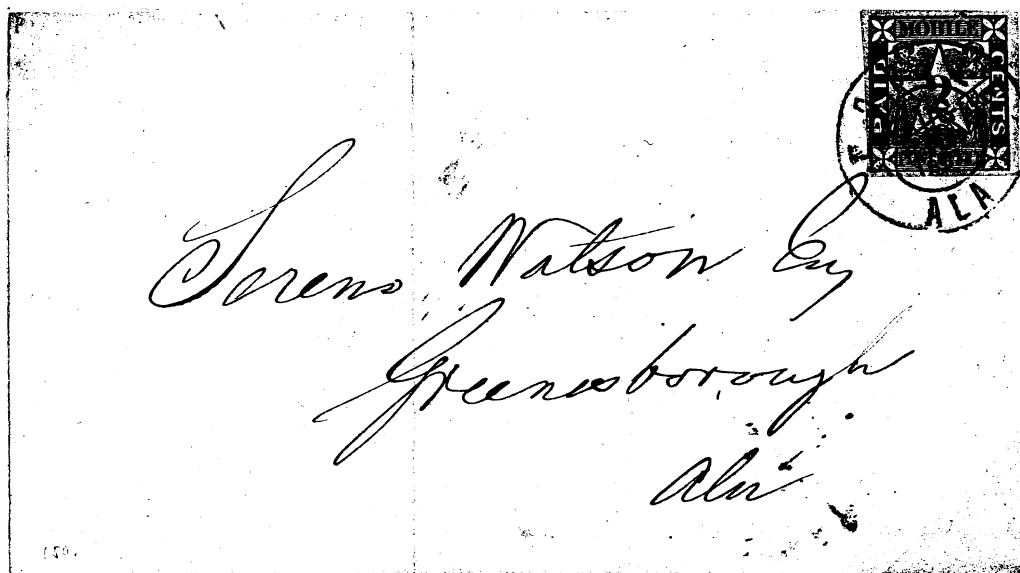 MOBILE
PAID
2
CENTS
ALA
Sereno Watson Esq
Greenesborough
Ala